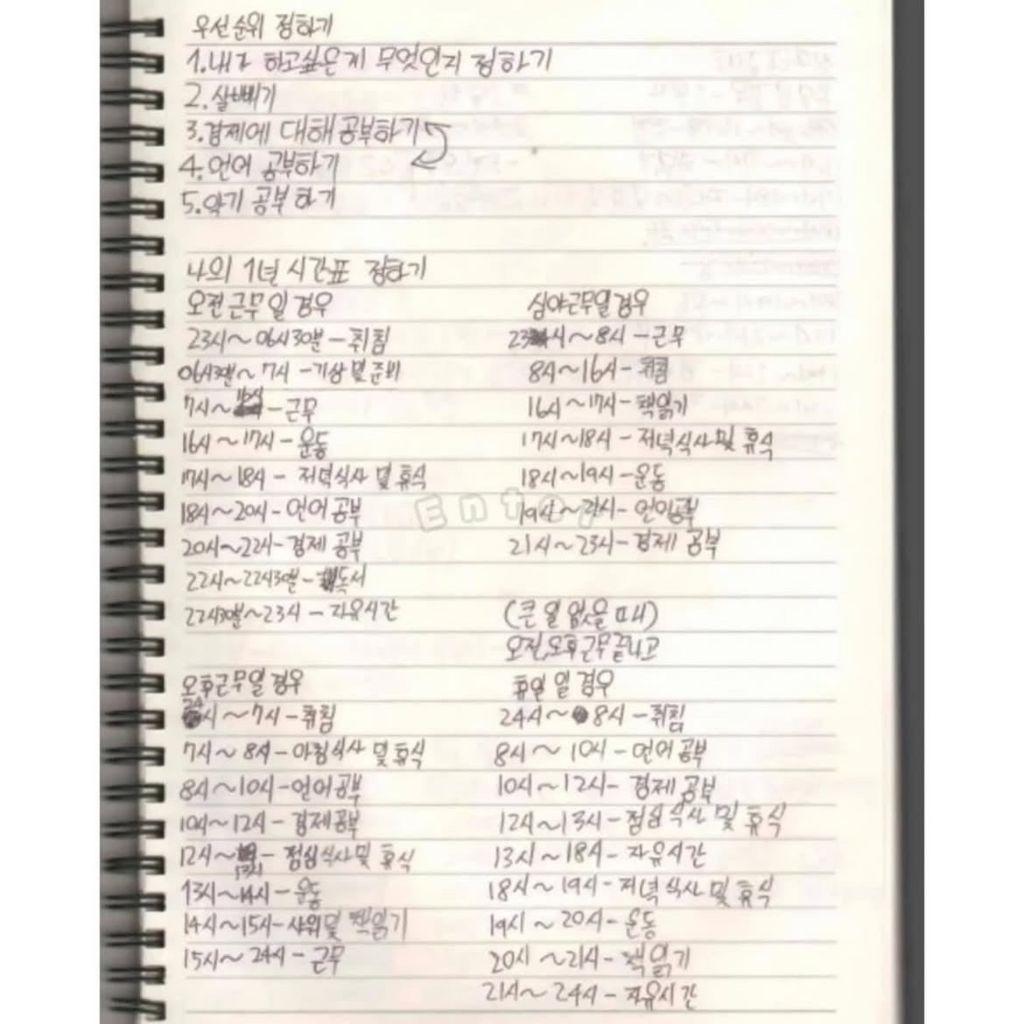 우선순위 정하기
1.내가 하고싶은게 무엇인지 정하기
2.살빼기
3.경제에 대해 공부하기
4.언어 공부하기
5.악기 공부하기
나의 1년 시간표 정하기
오전근무일경우
23시~06시30분-취침
06시30분~7시-기상및준비
7시~ -근무
16시~17시-운동
17시~18시-저녁식사 및 휴식
18시~20시-언어공부
20시~22시-경제 공부
22시~22시30분-독서
22시30분~23시-자유시간
심야근무일경우
23시~8시-근무
8시~16시-취침
16시~17시-책읽기
17시~18시-저녁식사및 휴식
18시~19시-운동
19시~21시-언어공부
21시~23시-경제 공부
Enter
오후근무일경우
24시~7시-취침
7시~8시-아침식사 및 휴식
8시~10시-언어공부
10시~12시-경제공부
12시~13시-점심식사및 휴식
13시~14시-운동
14시~15시-샤워및 책읽기
15시~24시-근무
(큰 일 없을 때)
오전,오후근무끝나고
휴일 일 경우
24시~8시-취침
8시~10시-언어공부
10시~12시-경제공부
12시~13시-점심식사 및 휴식
13시~18시-자유시간
18시~19시-저녁식사 및 휴식
19시~20시-운동
20시~21시-책읽기
21시~24시-자유시간